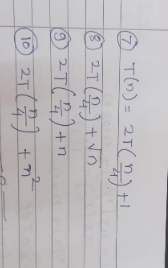 ⑦ T(n) = 2T(n/4) + 1
⑧ 2T(n/4) + √n
⑨ 2T(n/4) + n
⑩ 2T(n/4) + n²